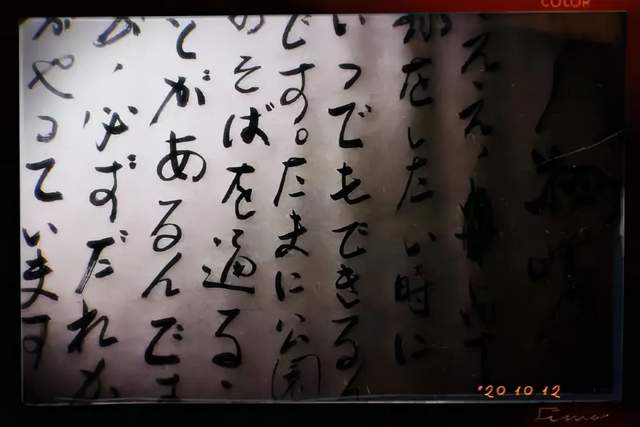 ええ、
をしたい時に
いつでもできるん
です。たまに公園
のそばを通る
とがあるんです
が、必ずだれか
がやっています
COLOR
'20 10 12